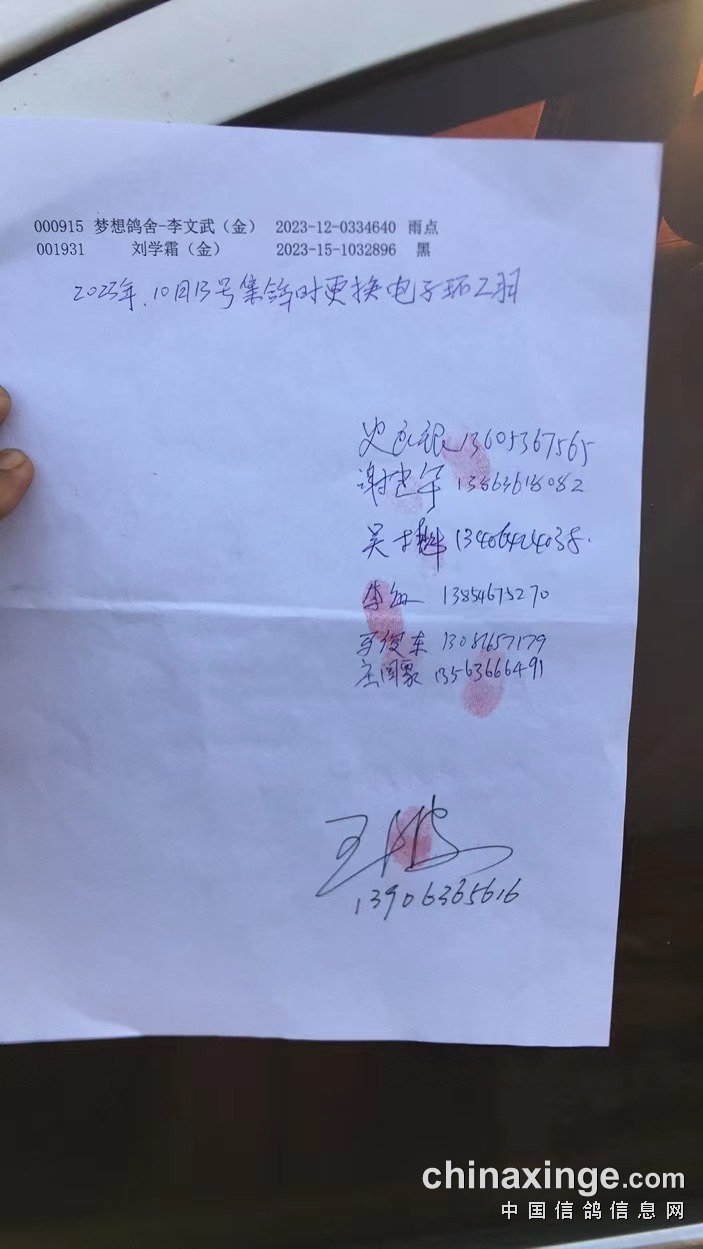 000915 梦想鸽舍-李文武（金） 2023-12-0334640 雨点
001931 刘学霜（金） 2023-15-1032896 黑
2023年.10月13号集鸽时更换电子环2羽
史 银 13605367565
谢建军 13863618082
吴 13406424038.
李 13854675270
俊东 13081657179
庄国 13563666491
王
13906365616
chinaxinge.com
中国信鸽信息网